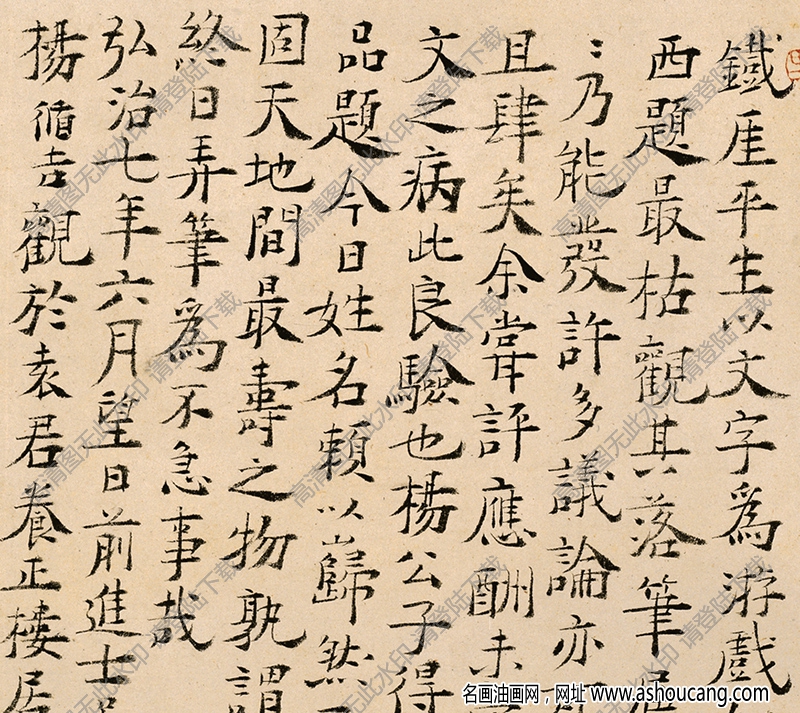 鐵厓平生以文字爲游戲
西題最枯觀其落筆
〻乃能發許多議論亦
且肆矣余嘗評應酬未
文之病此良驗也楊公子得
品題今日姓名賴以巋然
固天地間最壽之物孰謂
終日弄筆爲不急事哉
弘治七年六月望日前進士
楊循吉觀於袁君養正樓居
高清图无此水印 请登陆下载
名画油画网，网址 www.ashoucang.com